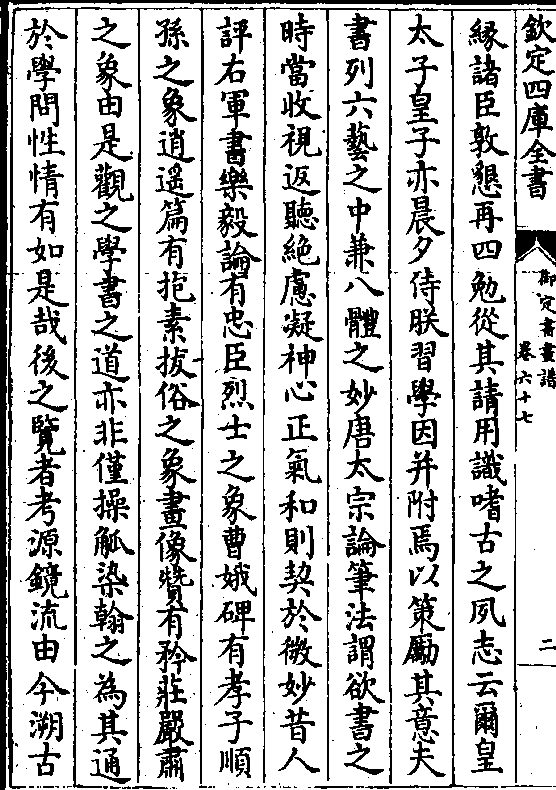 欽定四庫全書
御定書畫譜
卷六十七
二
縁諸臣敦懇再四勉從其請用識嗜古之夙志云爾皇
太子皇子亦晨夕侍朕習學因并附焉以策勵其意夫
書列六藝之中兼八體之妙唐太宗論筆法謂欲書之
時當收視返聽絶慮凝神心正氣和則契於微妙昔人
評右軍書樂毅論有忠臣烈士之象曹娥碑有孝子順
孫之象逍遥篇有抱素拔俗之象畫像贊有矜莊嚴肅
之象由是觀之學書之道亦非僅操觚染翰之為其通
於學問性情有如是哉後之覽者考源鏡流由今溯古